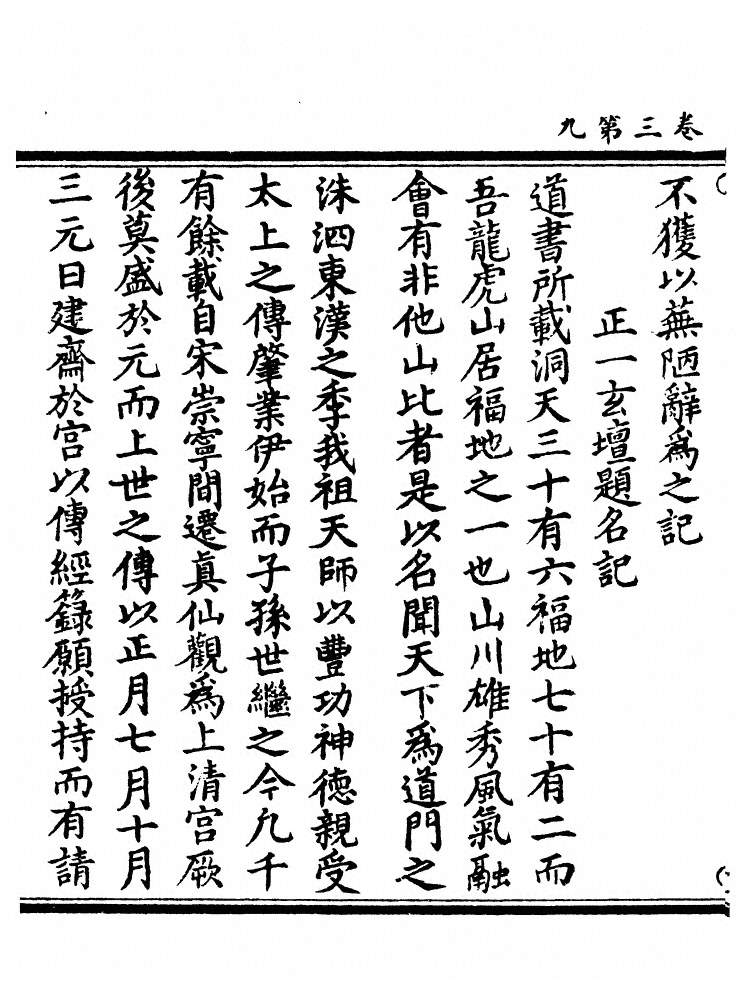 卷三第九
不獲以蕪陋辭為之記
正一玄壇題名記
道書所載洞天三十有六福地七十有二而
吾龍虎山居福地之一也山川雄秀風氣融
會有非他山比者是以名聞天下為道門之
洙泗東漢之季我祖天師以豐功神德親受
太上之傳肇業伊始而子孫世繼之今九千
有餘載自宋崇寧間遷真仙觀為上清宮厥
後莫盛於元而上世之傳以正月七月十月
三元日建齋於宮以傳經籙願授持而有請